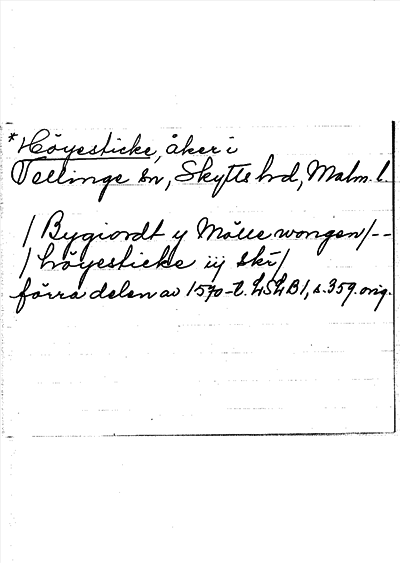 *Höyesticke, åker i
Vellinge sn, Skytts hd, Malm. l.
/ Bygiordt y Mölle wongen/--
/ höyesticke iij skr/
förra delen av 1570-t. LSLB1, s.359. orig.